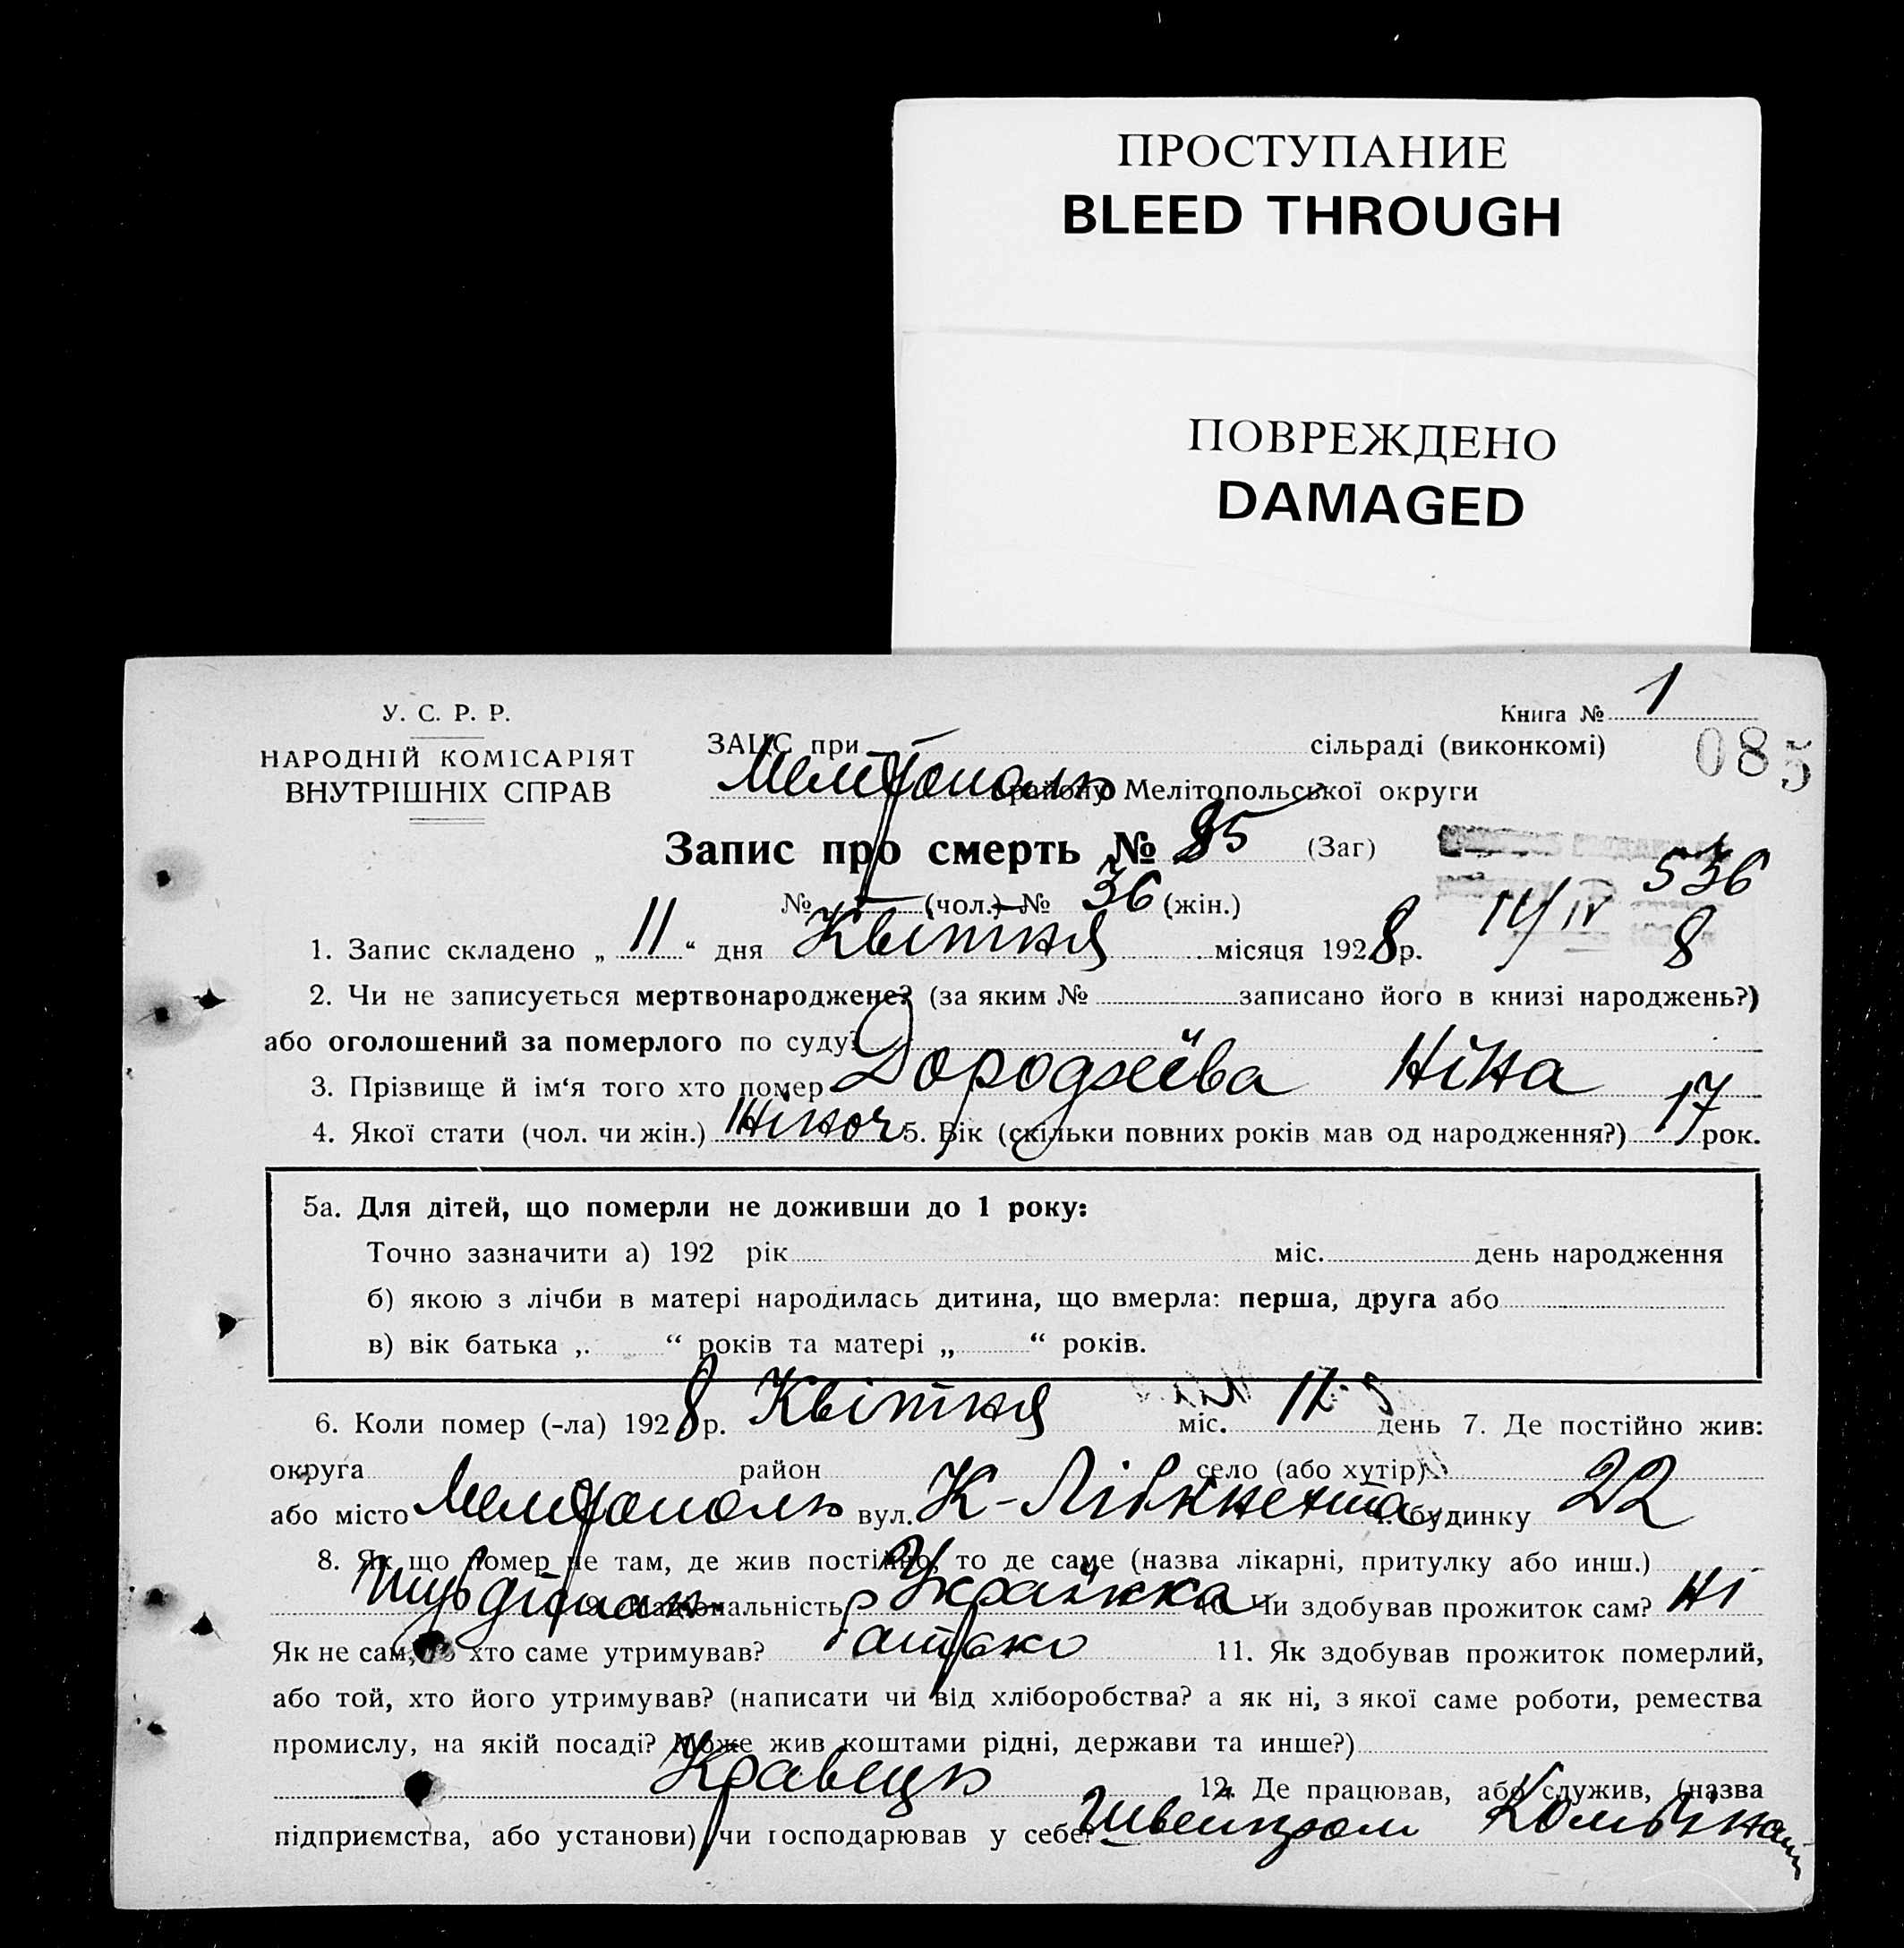 ПРОСТУПАНИЕ
BLEED THROUGH
ПОВРЕЖДЕНО
DAMAGED
У. С. Р. Р.
НАРОДНІЙ КОМІСАРІЯТ
ВНУТРІШНІХ СПРАВ
Книга № 1
085
ЗАЦС при сільраді (виконкомі)
Мелітополь району Мелітопольської округи
Запис про смерть № 85 (Заг)
536
№ (чол.) № 36 (жін.)
14/IV 8
1. Запис складено „ 11 “ дня Квітня місяця 1928 р.
2. Чи не записується мертвонароджене? (за яким № записано його в книзі народжень?)
або оголошений за померлого по суду?
3. Прізвище й ім‘я того хто помер Дородхеїва Ніна
4. Якої стати (чол. чи жін.) Жіноч 5. Вік (скільки повних років мав од народження?) 17 рок.
5а. Для дітей, що померли не доживши до 1 року:
Точно зазначити а) 192 рік міс. день народження
б) якою з лічби в матері народилась дитина, що вмерла: перша, друга або
в) вік батька „ “ років та матері „ “ років.
6. Коли помер (-ла) 1928 р. Квітня міс. день 7. Де постійно жив:
округа район село (або хутір)
або місто Мелітополь вул. К-Лібкнехта ч. будинку 22
8. Як що помер не там, де жив постійно, то де саме (назва лікарні, притулку або инш.)
9. Національність Українка 10. Чи здобував прожиток сам? Ні
Як не сам, то хто саме утримував? батько 11. Як здобував прожиток померлий,
або той, хто його утримував? (написати чи від хліборобства? а як ні, з якої саме роботи, ремества
промислу, на якій посаді? Може жив коштами рідні, держави та инше?)
Кравець 12. Де працював, або служив, (назва
підприємства, або установи), чи господарював у себе? Швейпром Комбінат